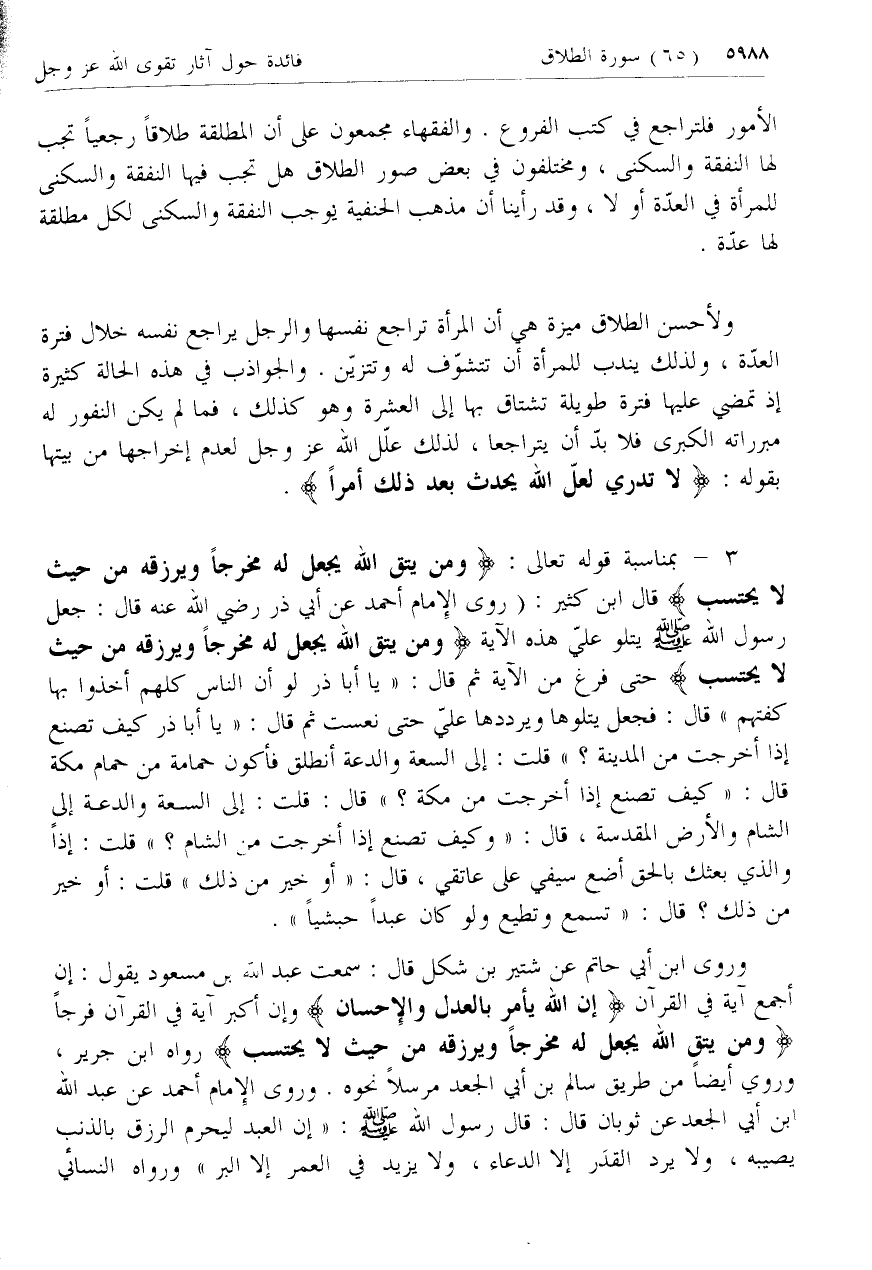 ٥٩٨٨ (٦٥) سورة الطلاق فائدة حول آثار تقوى الله عز وجل
الأمور فلتراجع في كتب الفروع . والفقهاء مجمعون على أن المطلقة طلاقاً رجعياً تجب
لها النفقة والسكنى ، ومختلفون في بعض صور الطلاق هل تجب فيها النفقة والسكنى
للمرأة في العدّة أو لا ، وقد رأينا أن مذهب الحنفية يوجب النفقة والسكنى لكل مطلقة
لها عدّة .
ولأحسن الطلاق ميزة هي أن المرأة تراجع نفسها والرجل يراجع نفسه خلال فترة
العدّة ، ولذلك يندب للمرأة أن تتشوّف له وتتزيّن . والجواذب في هذه الحالة كثيرة
إذ تمضي عليها فترة طويلة تشتاق بها إلى العشرة وهو كذلك ، فما لم يكن النفور له
مبرراته الكبرى فلا بدّ أن يتراجعا ، لذلك علّل الله عز وجل لعدم إخراجها من بيتها
بقوله : ﴿ لا تدري لعلّ الله يحدث بعد ذلك أمراً ﴾ .
٣ – بمناسبة قوله تعالى : ﴿ ومن يتق الله يجعل له مخرجاً ويرزقه من حيث
لا يحتسب ﴾ قال ابن كثير : ( روى الإمام أحمد عن أبي ذر رضي الله عنه قال : جعل
رسول الله ﷺ يتلو عليّ هذه الآية ﴿ ومن يتق الله يجعل له مخرجاً ويرزقه من حيث
لا يحتسب ﴾ حتى فرغ من الآية ثم قال : « يا أبا ذر لو أن الناس كلهم أخذوا بها
كفتهم » قال : فجعل يتلوها ويرددها عليّ حتى نعست ثم قال : « يا أبا ذر كيف تصنع
إذا أخرجت من المدينة ؟ » قلت : إلى السعة والدعة أنطلق فأكون حمامة من حمام مكة
قال : « كيف تصنع إذا أخرجت من مكة ؟ » قال : قلت : إلى السعة والدعة إلى
الشام والأرض المقدسة ، قال : « وكيف تصنع إذا أخرجت من الشام ؟ » قلت : إذاً
والذي بعثك بالحق أضع سيفي على عاتقي ، قال : « أو خير من ذلك » قلت : أو خير
من ذلك ؟ قال : « تسمع وتطيع ولو كان عبداً حبشياً » .
وروى ابن أبي حاتم عن شتير بن شكل قال : سمعت عبد الله بن مسعود يقول : إن
أجمع آية في القرآن ﴿ إن الله يأمر بالعدل والإحسان ﴾ وإن أكبر آية في القرآن فرجاً
﴿ ومن يتق الله يجعل له مخرجاً ويرزقه من حيث لا يحتسب ﴾ رواه ابن جرير ،
وروي أيضاً من طريق سالم بن أبي الجعد مرسلاً نحوه . وروى الإمام أحمد عن عبد الله
ابن أبي الجعد عن ثوبان قال : قال رسول الله ﷺ : « إن العبد ليحرم الرزق بالذنب
يصيبه ، ولا يرد القدَر إلا الدعاء ، ولا يزيد في العمر إلا البر » ورواه النسائي